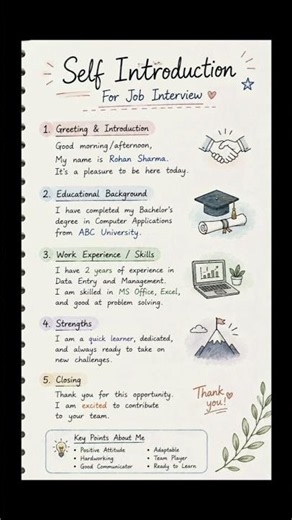 Self Introduction
For Job Interview
1. Greeting & Introduction
Good morning/afternoon,
My name is Rohan Sharma.
It's a pleasure to be here today.
2. Educational Background
I have completed my Bachelor's
degree in Computer Applications
from ABC University.
3. Work Experience / Skills
I have 2 years of experience in
Data Entry and Management.
I am skilled in MS Office, Excel,
and good at problem solving.
4. Strengths
I am a quick learner, dedicated,
and always ready to take on
new challenges.
5. Closing
Thank you for this opportunity.
I am excited to contribute
to your team.
Thank
you!
Key Points About Me
• Positive Attitude
• Hardworking
• Good Communicator
• Adaptable
• Team Player
• Ready to Learn